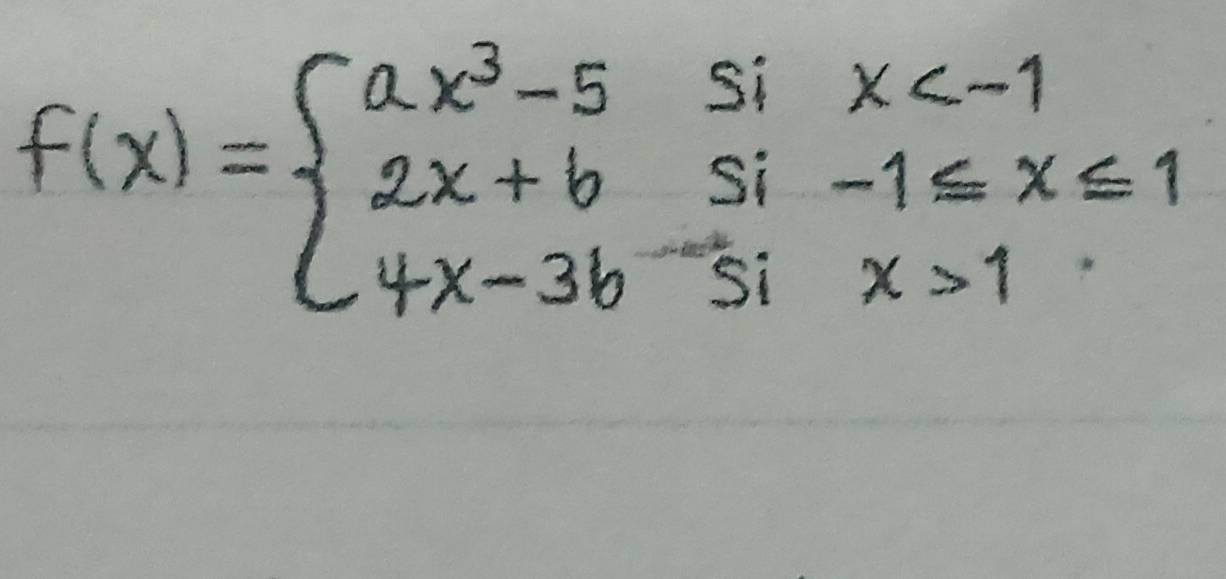 f(x) = { ax³ - 5 si x < -1
2x + b si -1 ≤ x ≤ 1
4x - 3b si x > 1